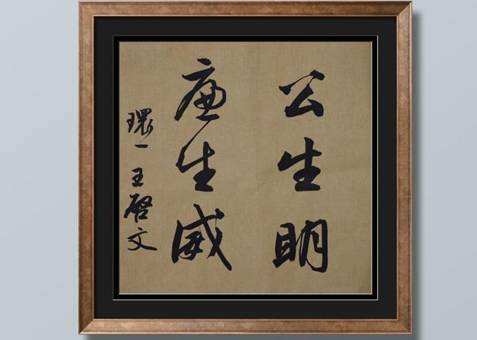 公生明
廉生威
環一王啓文